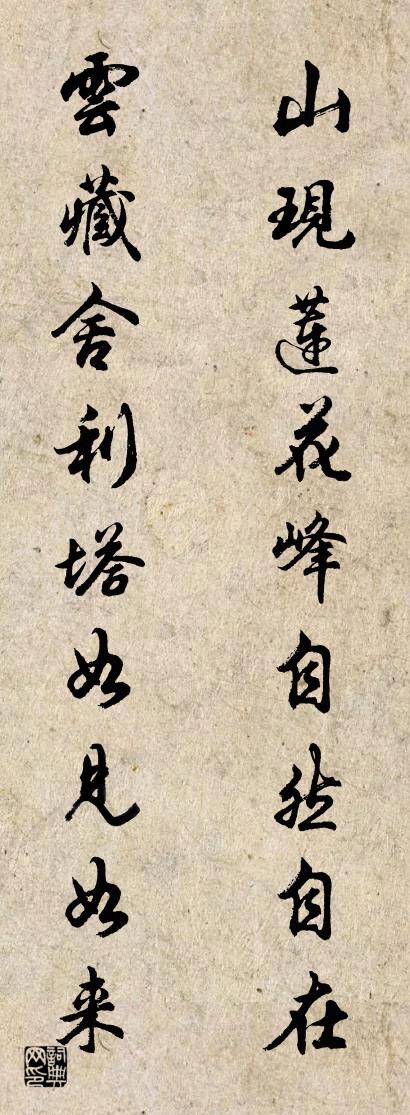 山現蓮花峰自然自在
雲藏舍利塔如見如来
詞典网印